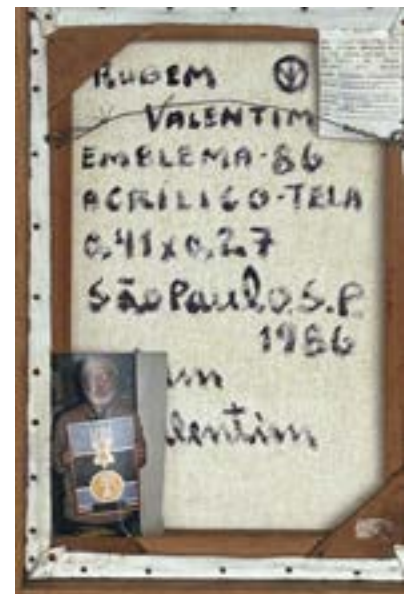 RUBEM
VALENTIM
EMBLEMA-86
ACRÍLICO-TELA
0,41x0,27
São Paulo.S.P.
1986
alentim